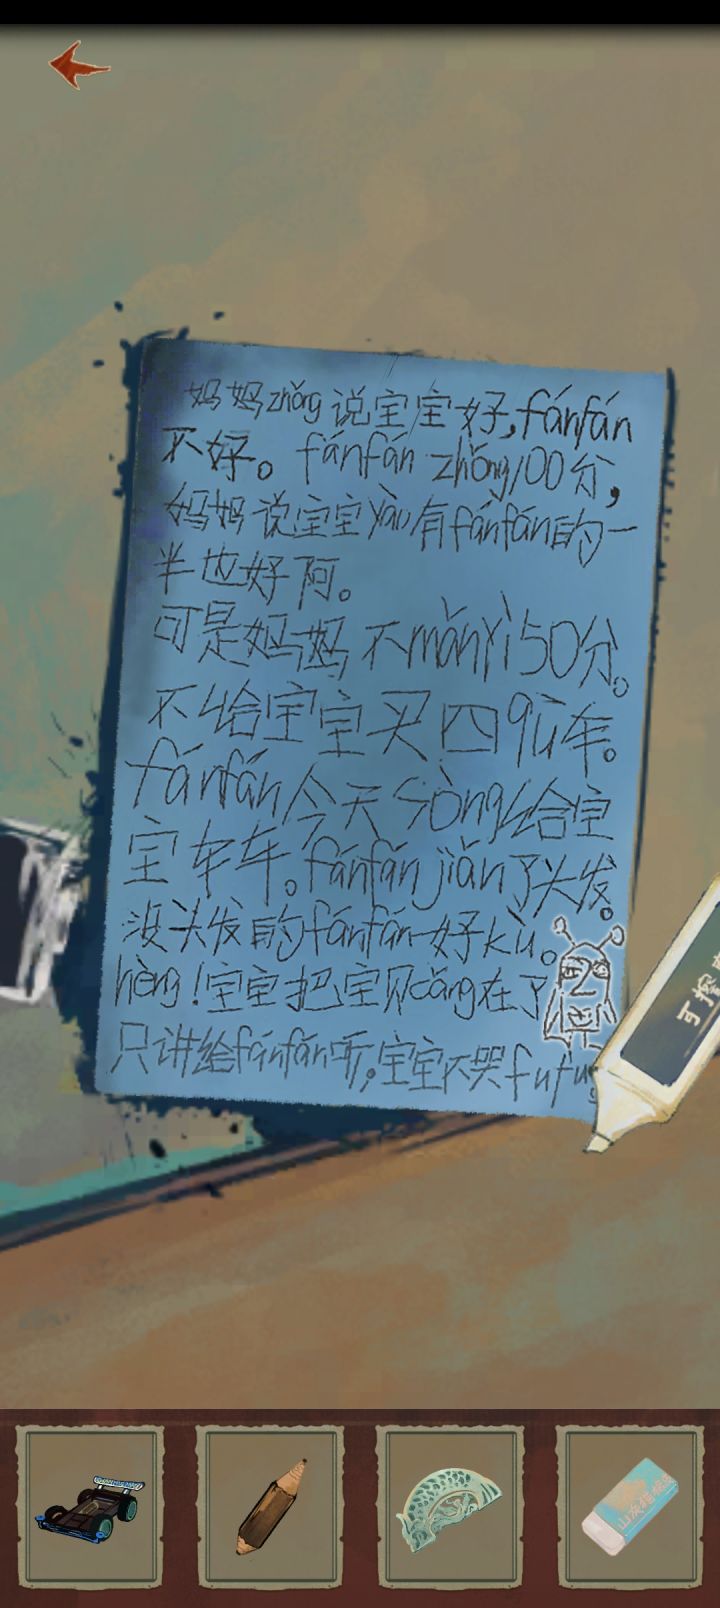 妈妈zhǒng说宝宝好,fánfán
不好。fánfán zhǒng100分,
妈妈说宝宝yào有fánfán的一
半也好阿。
可是妈妈不mǎnyì50分。
不给宝宝买四qū车。
fánfán今天sòng给宝
宝车车。fánfán jiǎn了头发。
没头发的fánfán好kù。
hèng!宝宝把宝贝cáng在了
只讲给fánfán听,宝宝不哭fufu。
可擦
山灰猫橡皮